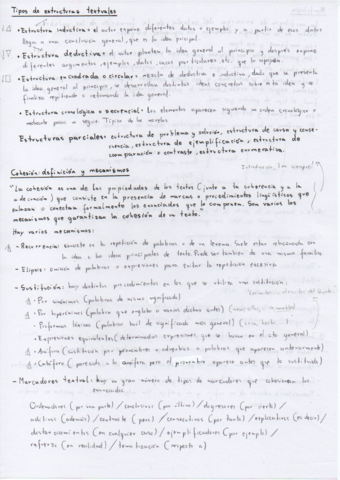 Tipos de estructuras textuales
• Estructura inductiva: el autor expone diferentes datos o ejemplos y, a partir de esos datos
llega a una conclusión general, que es la idea principal.
• Estructura deductiva: el autor plantea la idea general al principio y después expone
diferentes argumentos, ejemplos, datos, casos particulares, etc. que la apoyan.
• Estructura encuadrada o circular: mezcla de deductiva e inductiva, dado que se presenta
la idea general al principio, se desarrollan distintas ideas concretas sobre esta idea y se
finaliza repitiendo o retomando la idea general
• Estructura cronológica o secuencial: Los elementos aparecen siguiendo un orden cronológico o
paso a paso. Típico de las novelas
Estructuras parciales: estructura de problema y solución, estructura de causa y conse-
cuencia, estructura de ejemplificación, estructura de
comparación o contraste, estructura enumerativa.
Cohesión: definición y mecanismos
"La cohesión es una de las propiedades de los textos (junto a la coherencia y a la
adecuación) que consiste en la presencia de marcas o procedimientos lingüísticos que
enlazan o conectan formalmente los enunciados que lo componen. Son varios los
mecanismos que garantizan la cohesión de un texto."
Hay varios mecanismos:
- Recurrencia: consiste en la repetición de palabras o de un lexema. Suele estar relacionada con
la idea o las ideas principales de texto. Puede ser también de una misma familia
- Elipsis: omisión de palabras o expresiones para evitar la repetición excesiva
- Sustitución: hay distintos procedimientos en los que se utiliza una sustitución:
- Por sinónimos (palabras de mismo significado)
- Por hiperónimos (palabra que engloba a varios dichos antes)
- Proformas léxicas (palabras baúl de significado muy general)
- Expresiones equivalentes (determinadas expresiones que se basan en el uso general)
- Anáfora (sustitución por pronombres o adverbios a palabras que aparecen anteriormente)
- Catáfora (parecido a la anáfora pero el pronombre aparece antes que lo sustituido)
- Marcadores textuales: hay un gran número de tipos de marcadores que cohesionan los
enunciados.
Ordenadores (por una parte) / conclusivos (por último) / digresores (por cierto) /
aditivos (además) / contraste (pero) / consecutivos (por tanto) / explicativos (es decir) /
distanciamiento (en cualquier caso) / ejemplificadores (por ejemplo) /
refuerzo (en realidad) / tematización (respecto a)